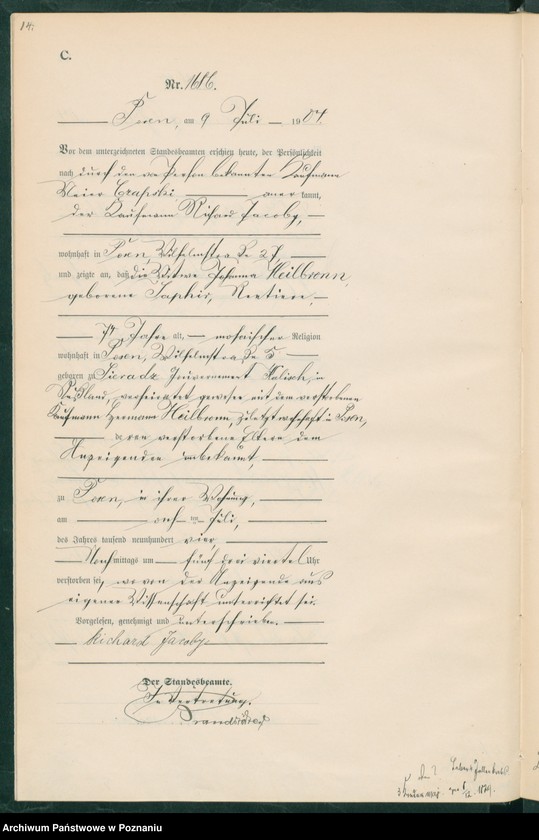 14.
C.
Nr. 1686.
Posen, am 9 Juli 1904.
Vor dem unterzeichneten Standesbeamten erschien heute, der Persönlichkeit
nach durch den von Person bekannten Kaufmann
Meier Czapski anerkannt,
der Kaufmann Richard Jacoby,
wohnhaft in Posen, Wilhelmstraße 27,
und zeigte an, daß die Witwe Johanna Heilbronn,
geborene Saphir, Rentiere,
Jahre alt, mosaischer Religion
wohnhaft in Posen, Wilhelmstraße 5
geboren zu Sieradz Gouvernement Kalisch, in
Rußland, verheiratet gewesen mit dem verstorbenen
Kaufmann Hermann Heilbronn, zuletzt wohnhaft in Posen,
deren verstorbene Eltern dem
Anzeigenden unbekannt,
zu Posen, in ihrer Wohnung,
am ten Juli,
des Jahres tausend neunhundert vier,
Nachmittags um fünf drei viertel Uhr
verstorben sei, wovon der Anzeigende aus
eigener Wissenschaft unterrichtet sei.
Vorgelesen, genehmigt und unterschrieben.
Richard Jacoby
Der Standesbeamte.
In Vertretung.
Archiwum Państwowe w Poznaniu